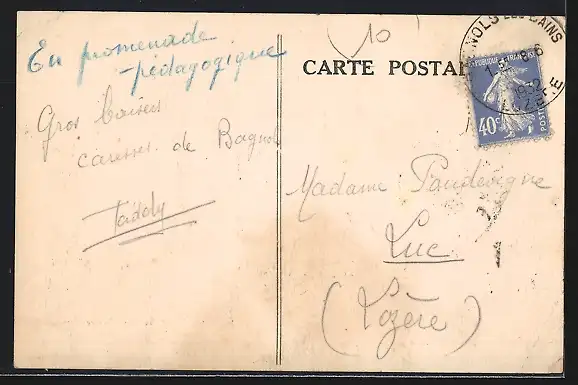 En promenade
-pédagogique
Gros baisers
caresses de Bagnols
Tadoly
10
CARTE POSTALE
NOLS LES BAINS
1932
LOZERE
REPUBLIQUE FRANÇAISE
40c
POSTES
Madame Pandevigne
Luc
(Lozère)